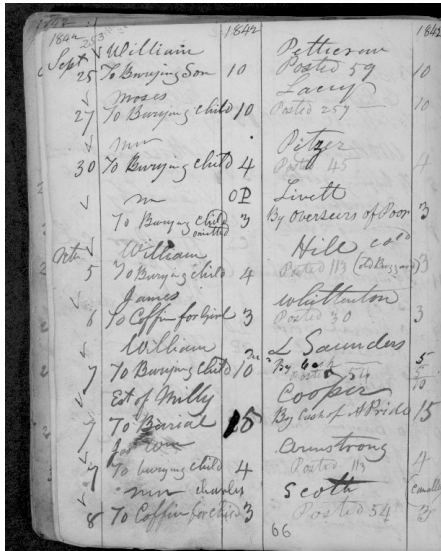 1842 1842 1842
Sept William Petticrew
25 To Burying Son 10 Posted 59 10
Moses Lacy
27 To Burying Child 10 Posted 257 10
mr Pitzer
30 To Burying Child 4 Posted 45 4
m OP Livett
To Burying Child 3 By Overseirs of Poor 3
omitted
William Hill col'd
5 To Burying child 4 Posted 113 (old Buzzard) 3
James Whittenton
6 To Coffin for Girl 3 Posted 30 3
William L Saunders
7 To Burying Child 10 By Cash 5
Posted 54 5
10
Est of Milly Cooper
7 To Burial 15 By Cash of A Pride 15
Wm Armstrong
7 To burying child 4 Posted 113 4
mr charles Scoth
8 To Coffin for child 3 Posted 54 3
66